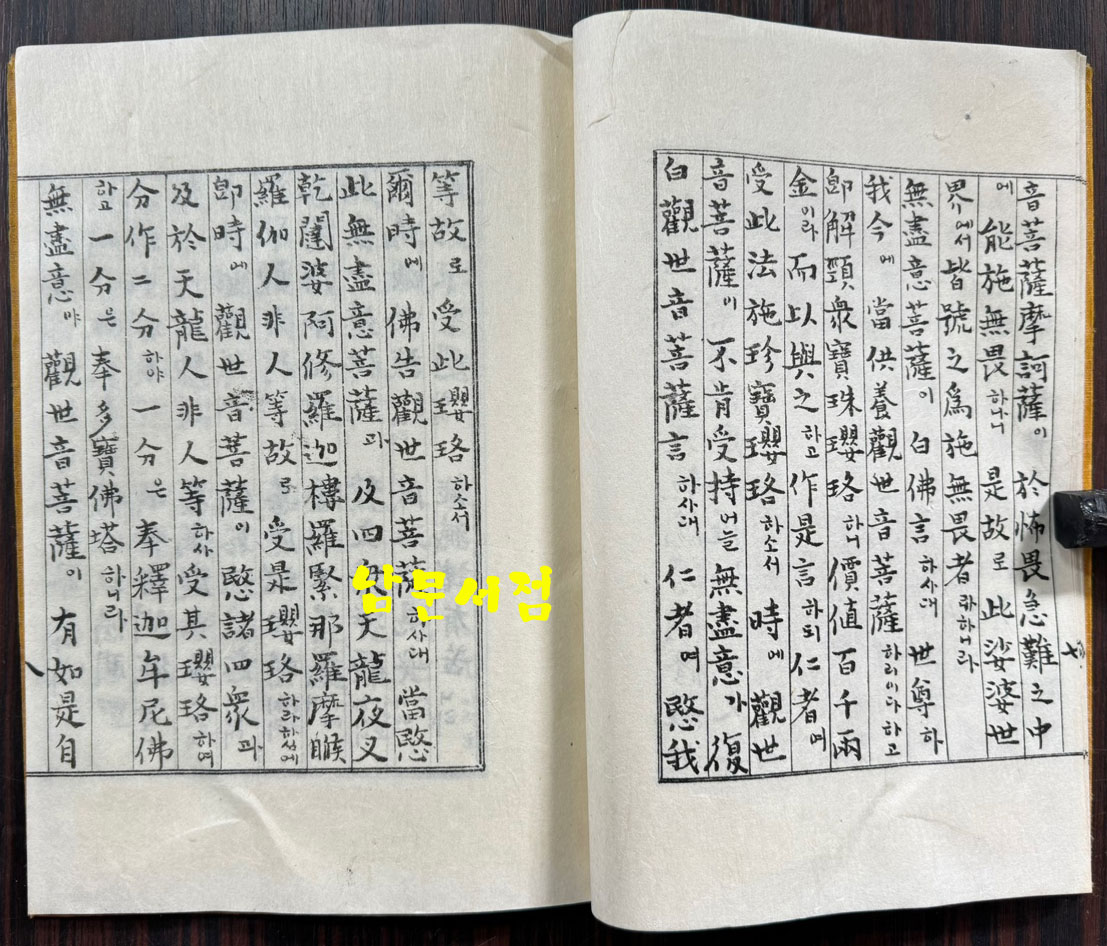 音菩薩摩訶薩이 於怖畏急難之中
에 能施無畏하나니 是故로 此娑婆世
界에서 皆號之爲施無畏者라하니라
無盡意菩薩이 白佛言하사대 世尊하
我今에 當供養觀世音菩薩하리이다하고
卽解頸衆寶珠瓔珞하니 價値百千兩
金이라 而以與之하고 作是言하되 仁者여
受此法施珍寶瓔珞하소서 時에 觀世
音菩薩이 不肯受持어늘 無盡意가 復
白觀世音菩薩言하사대 仁者여 愍我
等故로 受此瓔珞하소서
爾時에 佛告觀世音菩薩하사대 當愍
此無盡意菩薩과 及四衆天龍夜叉
乾闥婆阿修羅迦樓羅緊那羅摩睺
羅伽人非人等故로 受是瓔珞하라하섬에
卽時에 觀世音菩薩이 愍諸四衆과
及於天龍人非人等하사 受其瓔珞하여
分作二分하야 一分은 奉釋迦牟尼佛
하고 一分은 奉多寶佛塔하니라
無盡意야 觀世音菩薩이 有如是自
七
남문서점